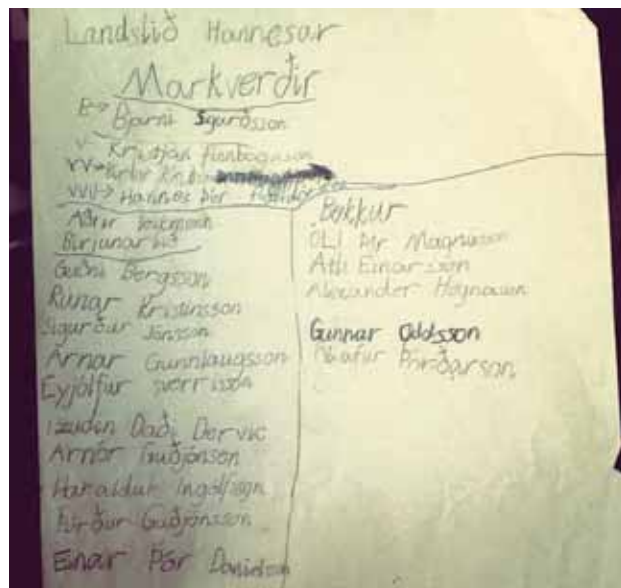 Landslið Hannesar
Markverðir
B→ Bjarni Sgurðsson
V Kristján finnbogason
VV→ Birkir Krist
VVV→ Hannes Þór
Aðrir leikmenn
Birjunarlið
Guðni Bergsson
Rúnar Kristinsson
Sigurður Jónsson
Arnar Gunnlaugsson
Eyjólfur sverrisson
izudin Daði Dervic
Arnór Guðjónson
Haraldur Ingólfsson
Þórður Guðjónsson
Einar Þór Danielson
Bekkur
ÓLI Þór Magnússon
Atli Einarsson
Alexander Högnason
Gunnar Oddsson
Ólafur Þórðarson